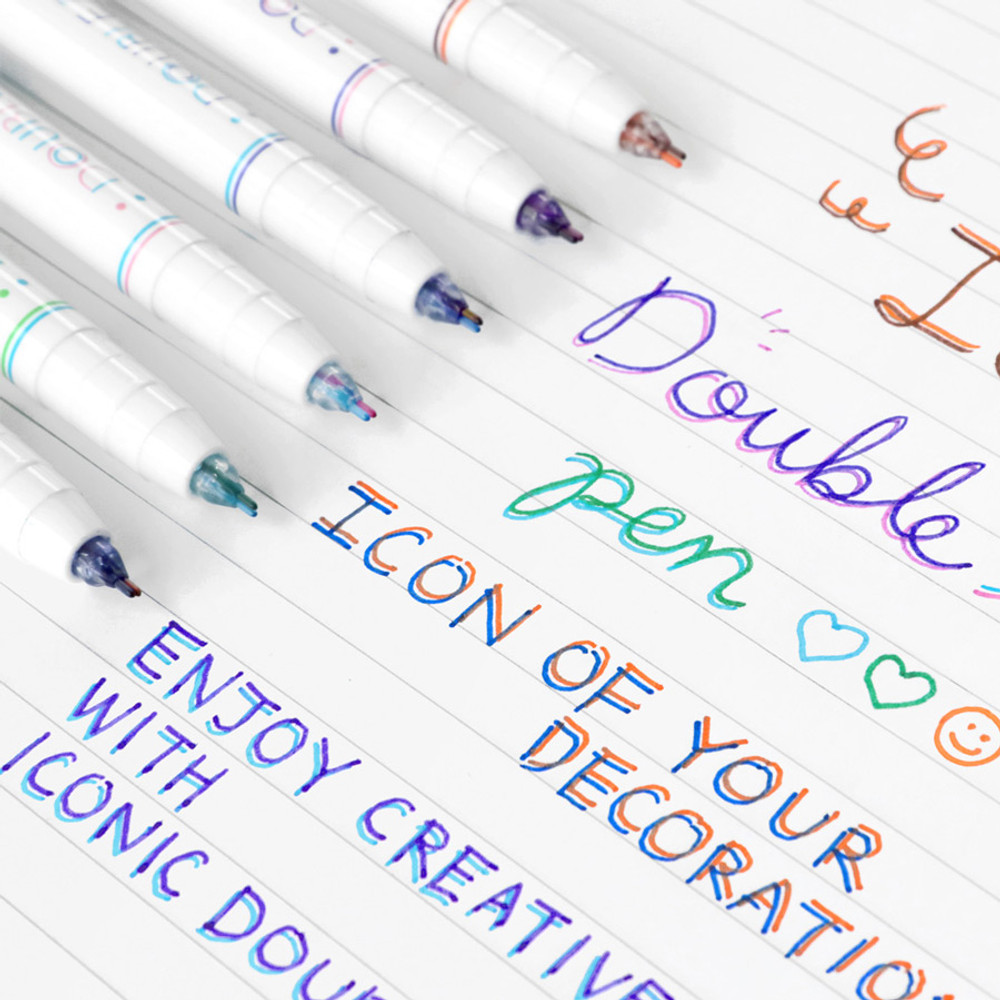 Double
pen
ICON OF YOUR
DECORATIO
ENJOY CREATIVE
WITH
ICONIC DOU